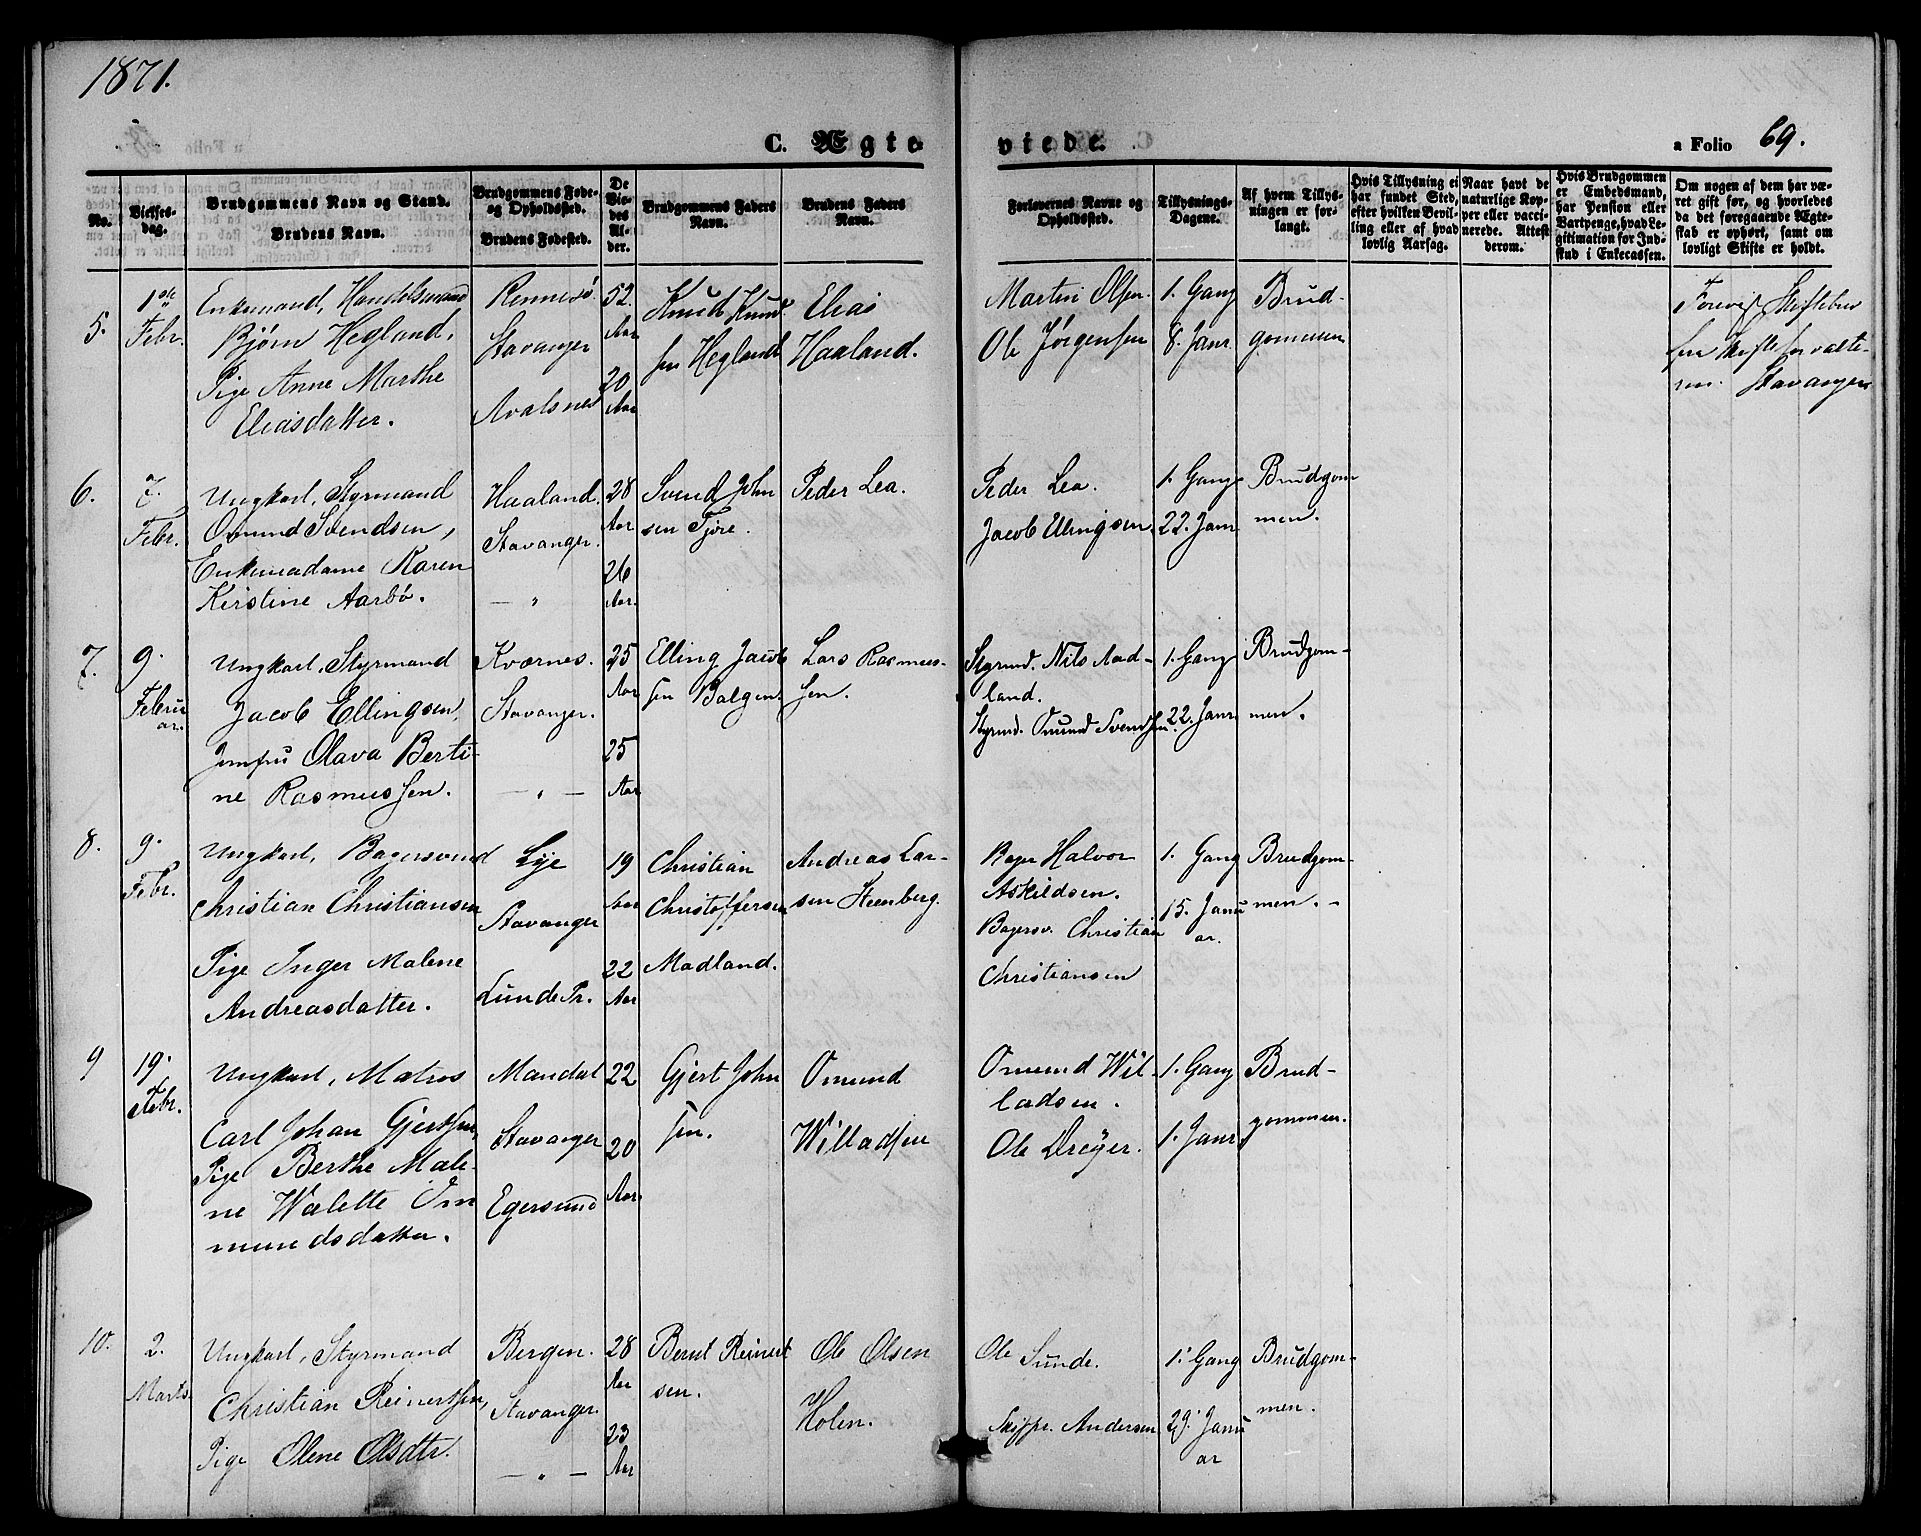 1871.
C. Ægte viede. a Folio 69.
No.
Vielses-
dag.
Brudgommens Navn og Stand.
Brudens Navn.
Brudgommens Føde-
og Opholdssted.
Brudens Fødested.
De
Vie-
des Al-
der.
Brudgommens Faders
Navn.
Brudens Faders
Navn.
Forlovernes Navne og
Opholdssted.
Tillysnings-
Dagene.
Af hvem Tillys-
ningen er for-
langt.
Hvis Tillysning ei
har fundet Sted,
efter hvilken Bevil-
ling eller af hvad
lovlig Aarsag.
Naar havt de
naturlige Kop-
per eller vacci-
nerede. Attest
derom.
Hvis Brudgommen
er Embedsmand,
har Pension eller
Vartpenge, hvad Le-
gitimation for Ind-
skud i Enkecassen.
Om nogen af dem har væ-
ret gift før, og hvorledes
da det foregaaende Ægte-
skab er ophørt, samt om
lovligt Skifte er holdt.
5.
1ste
Febr.
Enkemand, Handelsmand
Bjørn Hegland,
Pige Anne Marthe
Eliasdatter.
Rennesø
Stavanger
Avalsnes
52
Aar
20
Aar
Knud Knud-
sen Hegland
Elias
Haaland.
Martin Olsen.
Ole Jørgensen
1. Gang
8. Janr
Brud-
gommen
Forevist Skiftebrev
fra Skifteforvalte-
ren. Stavanger
6.
7.
Febr.
Ungkarl, Styrmand
Omund Svendsen,
Enkemadame Karen
Kirstine Aarbø.
Haaland.
Stavanger.
— " 
28
Aar
26
Aar.
Svend John
sen Tjøre.
Peder Lea.
Peder Lea.
Jacob Ellingsen.
1. Gang
22. Janr
Brudgom
men.
7.
9.
Febru
ar.
Ungkarl, Styrmand
Jacob Ellingsen,
Jomfru Olava Berti-
ne Rasmussen.
Kværnes.
Stavanger.
— " —
25
Aar
25
Aar
Elling Jacob
sen Bolgen.
Lars Rasmus-
sen.
Styrmd. Nils Aad-
land.
Styrmd. Omund Svendsen.
1. Gang
22. Janr
Brudgom-
men.
8.
9.
Febr.
Ungkarl, Bagersvend
Christian Christiansen
Pige Inger Malene
Andreasdatter.
Lye
Stavanger
Lunde Pr.
19
Aar
22
Aar
Christian
Christoffersen
Madland.
Andreas Lar-
sen Steenberg.
Bager Halvor
Askildsen.
Bagersv. Christian
Christiansen
1. Gang
15. Janu
ar.
Brudgom-
men. -
9
19.
Febr.
Ungkarl, Matros
Carl Johan Gjertsen,
Pige Berthe Male-
ne Walette Om
mundsdatter.
Mandal
Stavanger
Egersund
22
20
Aar
Gjert John
sen.
Omund
Willadsen
Omund Wil-
ladsen.
Ole Dreyer.
1. Gang
1. Janr
Brud-
gommen.
10.
2.
Marts.
Ungkarl, Styrmand
Christian Reinertsen,
Pige Olene Olsdtr.
Bergen.
Stavanger.
— " —
28
Aar
23
Aar
Bernt Reinert
sen.
Ole Olsen
Holen.
Ole Sunde.
Skippr. Andersen
1. Gang
29. Janu
ar
Brudgom-
men.